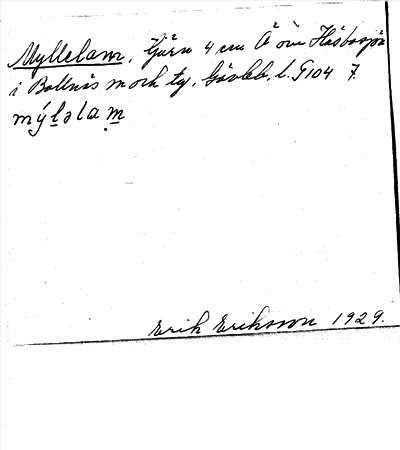 Myllelam, Tjärn 4 cm Ö om Håsbosjön
i Bollnäs m och tg, Gävleb. l. G104 7.
mýlǝlam
Erik Eriksson 1929.